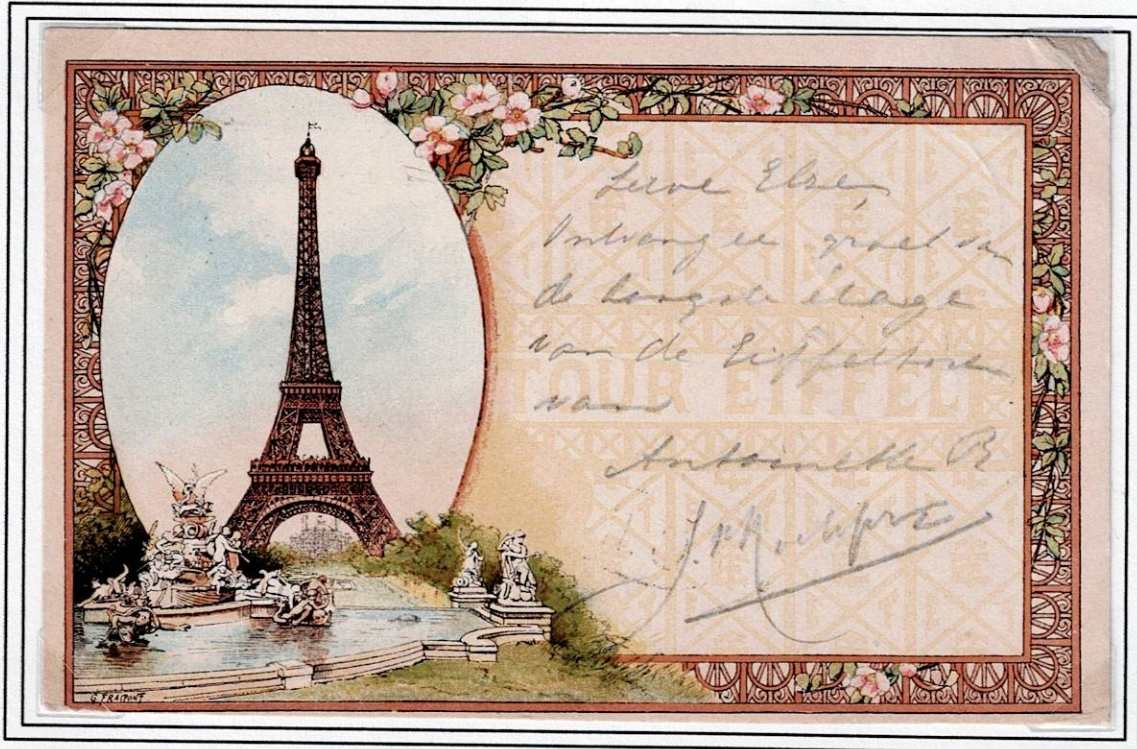 Lieve Elze,
Ontvang de groet van
de hoogste étage
van de Eiffeltoren
van
Antoinette R
TOUR EIFFEL
G. FRAIPONT